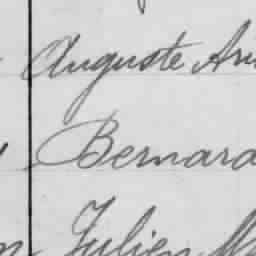 Auguste
Bernard
Julien